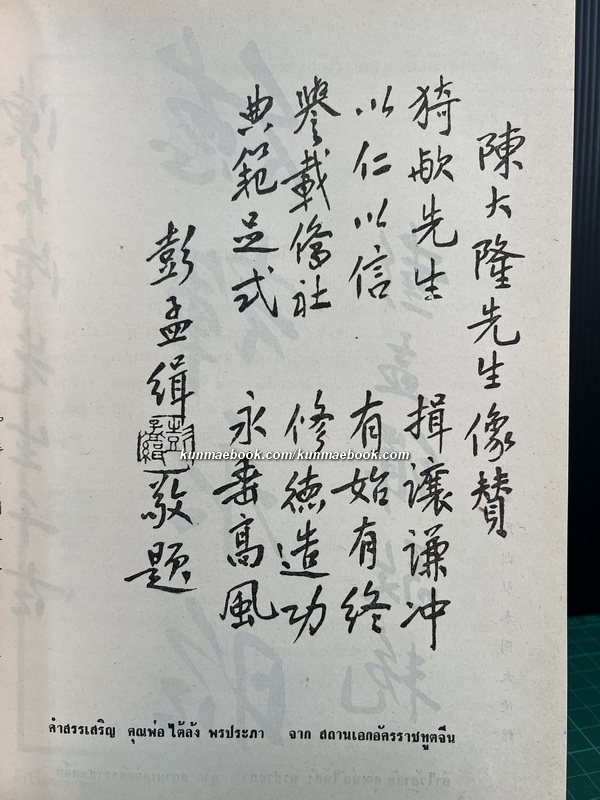 陳大隆先生像贊
猗歟先生 揖讓謙冲
以仁以信 有始有終
譽載僑社 修德造功
典範足式 永垂高風
彭孟緝 敬題
kunmaebook.com/kunmaebook.com
คำสรรเสริญ คุณพ่อ ไต้ล้ง พรประภา จาก สถานเอกอัครราชทูตจีน